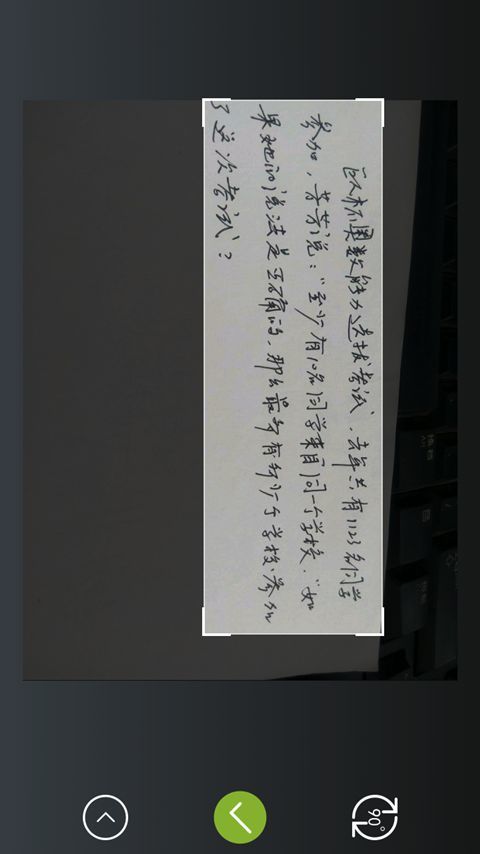 欧林匹奥数能力选拔考试,去年共有1123名同学
参加,芳芳说:"至少有10名同学来自同一个学校."如
果她的说法是正确的,那么最多有多少个学校参加
了这次考试?
90°